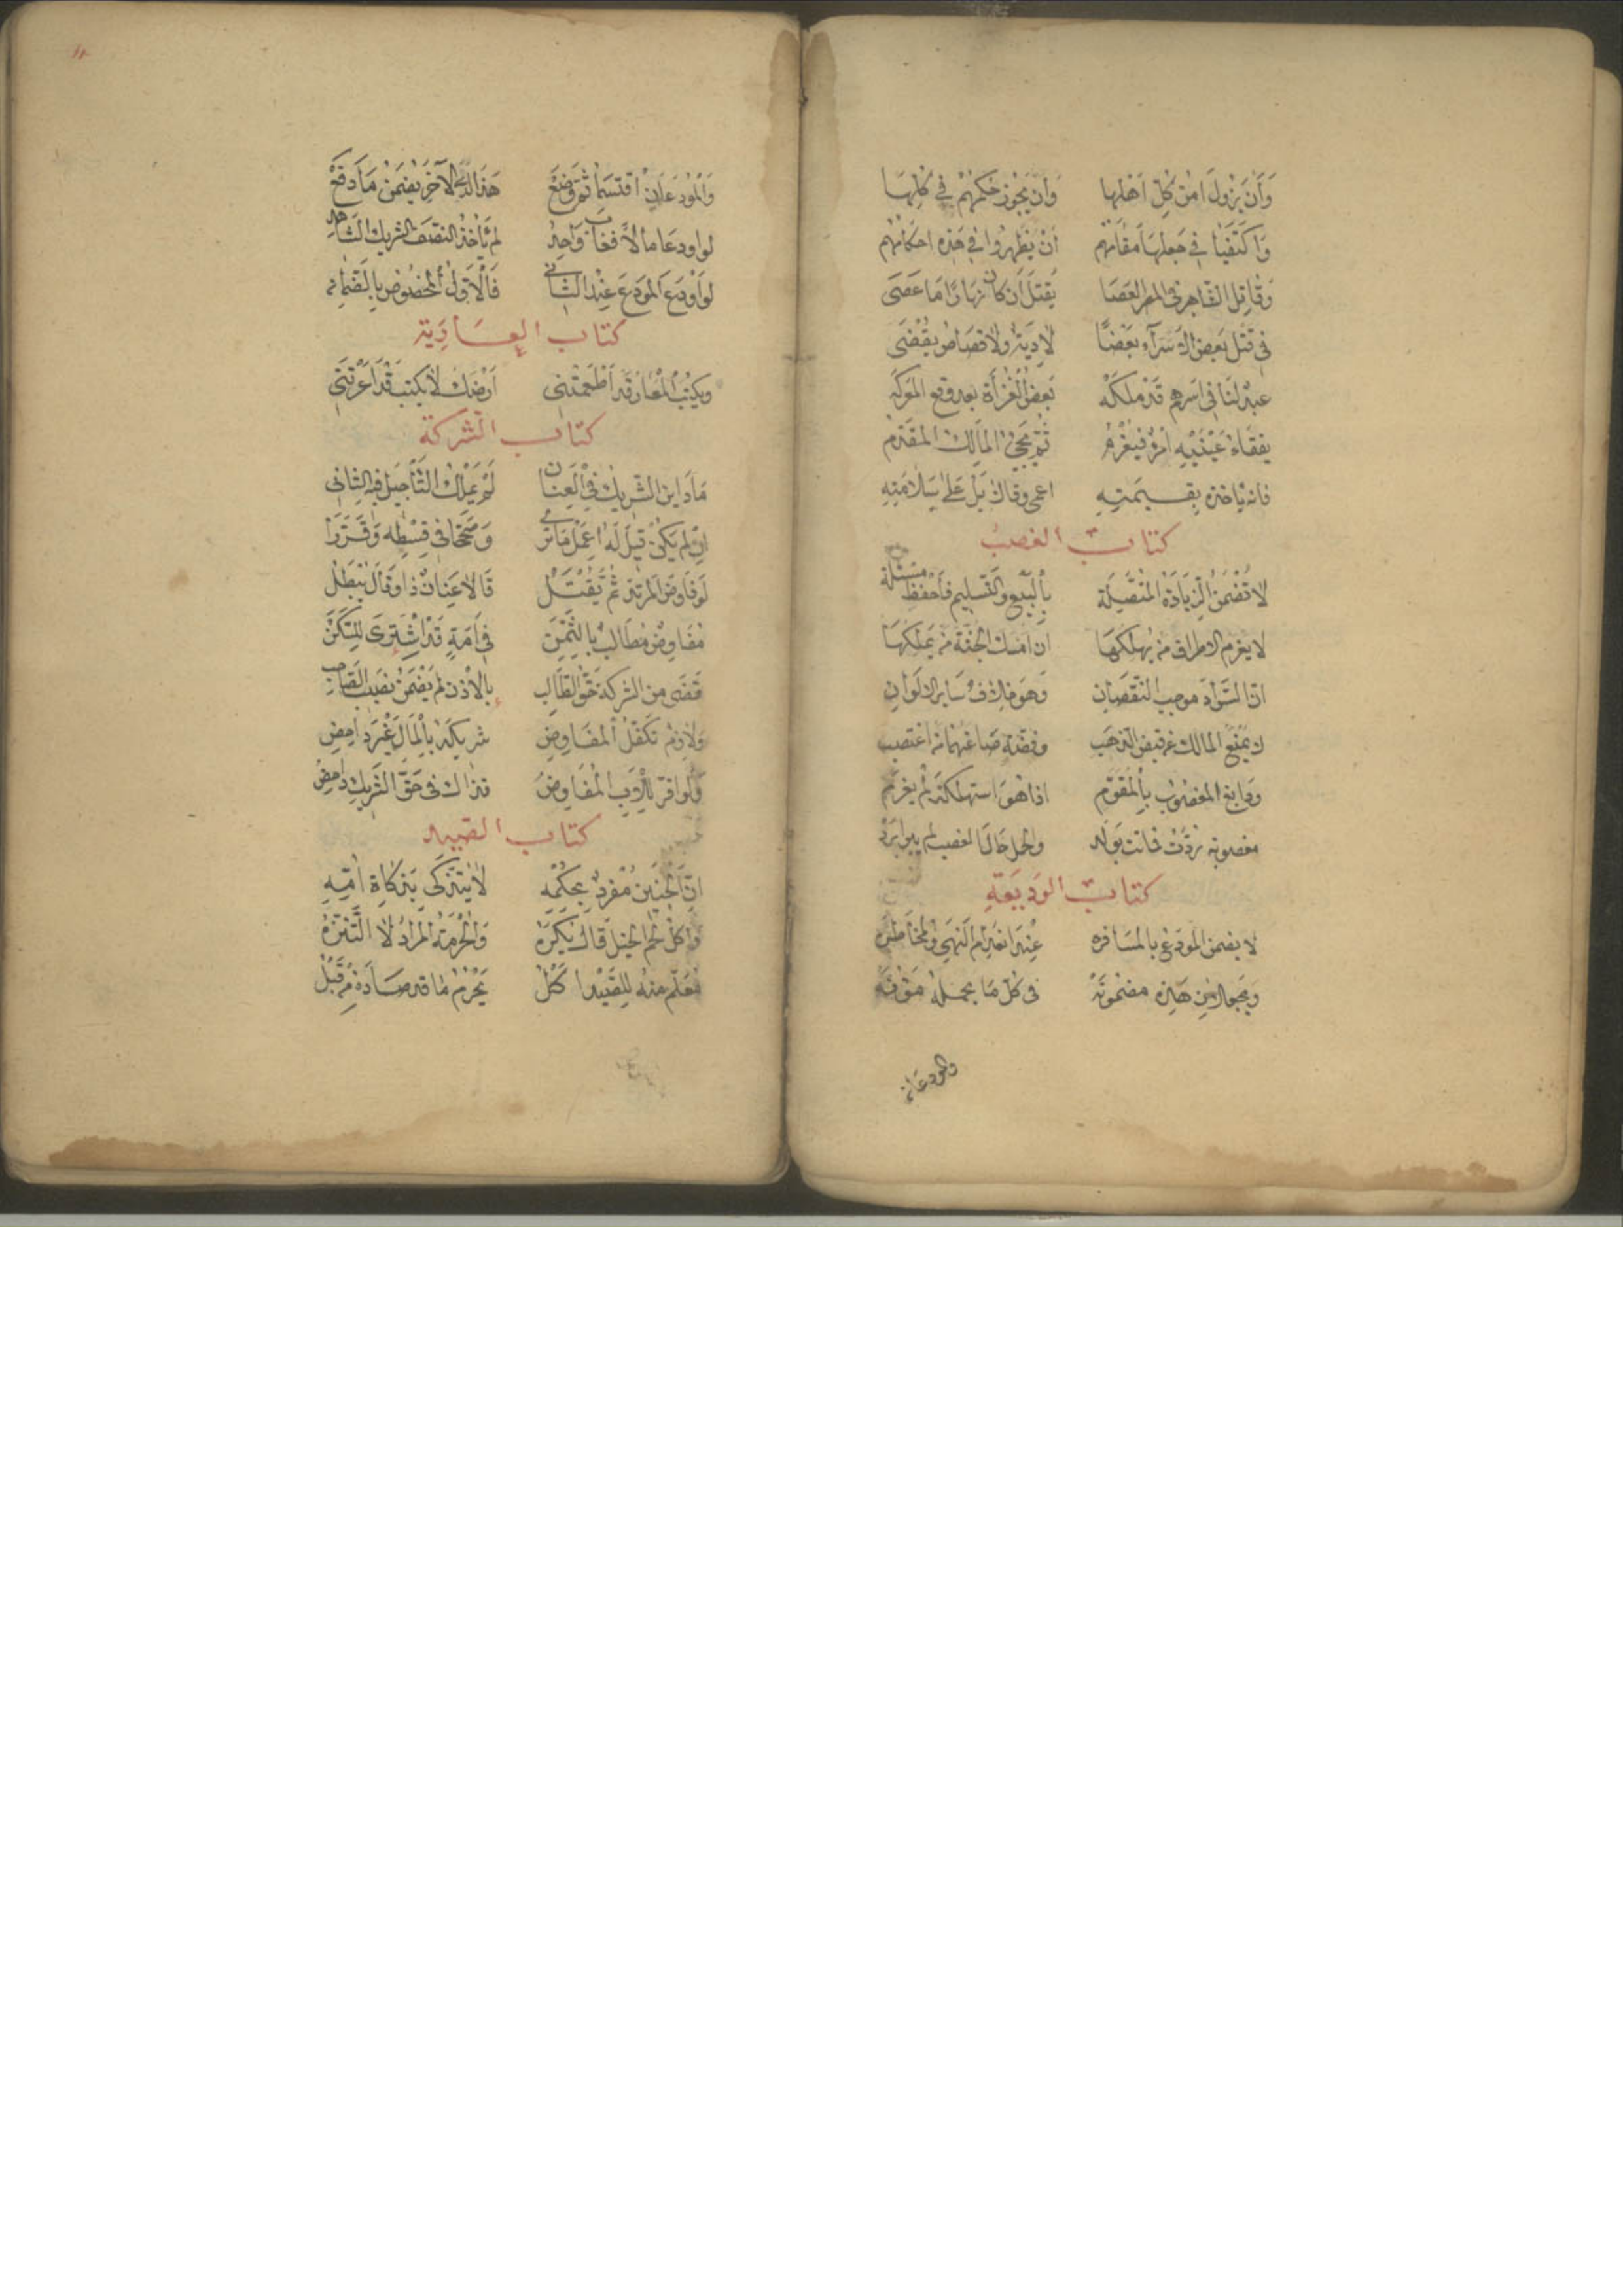 وَأَن يَزُولَ امْنُ كُلِّ اَهْلِهَا وَاَنْ يَجُوزَ حُكْمُهُمْ فِي كُلِّهَا
وَاكْتَفَيَا فِي جَعْلِهَا مَقَامَهُمْ اَنْ يُظْهِرُوا فِي هَذِهِ احكامَهُمْ
وَقَاتِل الشاهر فى المصر العَصَا يُقتَل ان كان نهارًا مَا عَصَى
فى قتل بَعض الاسَرآء بَعْضًا لَا دِيَةٌ ولا قصَاصٌ يُقْضَى
عبد لنا فى اسرهم قد ملكه بعضُ الغُزَاة بعد وقع المعركه
يفقاءُ عَيْنَيْهِ امرؤ فيَغْرَم ثُمَّ يجئُ المالك المقدّم
فانه ياخذه بِقيمَتِهِ اعمى وقالا بَلْ عَلى سَلامَتِهِ
كتاب الغصب
لا تُضْمَنُ الزِيَادَة المُنْفَصِلَة بِالبَيْع والتَسْلِيم فَاحْفَظْ مسئلة
لا يغرم الاطراف من يُهلكهَا ان امسك الجثة من يَملِكهَا
انّ السَّوَادَ موجب النقصَانِ وَهوَ خِلاف سَاير الالوانِ
لا يمنع المالك عن قبض الذهَب وفضة صَاغهُما من اغتصب
ودابغ المغصُوب بِالمُقَوَّم اذا هُوَ استهلكَهُ لم يغرَم
مغصوبة رُدَّت فماتت بوَلد والحمل حَالَ الغصب لم يبرا بَردّ
كتاب الوَدِيعَةِ
لا يضمن المُودَع بالمسَافره عِنْد انعدام النَهي والمُخَاطَرَه
ويجعل من هذه مضمُونَة فى كل مَا يحمله مَؤُنَة
والمودعان
وَالْمُودَعَانِ اقتسَمَا ثُمَّ وَضَعَ هَذَا لَدَى الآخَرِ يَضْمَنْ مَا دَفَعْ
لو اودعَا مالاً فغابَ وَاحِدُ لم يَأخذ النصفَ الشريك الشاهد
لو اَوْدَعَ المودَع عِنْد الثاني فَالْاَوَّلُ المخصُوص بالضَمان
كتاب العَارِيَة
ويكتُبُ المُعَار قد اَطْعَمتَنِى اَرْضَكَ لا يكتب قد اَعَرْتَنِى
كتاب الشركة
مَا دَاين الشَّرِيك فِى الْعِنَان لَمْ يَمْلِك التَّأجِيلَ فيه الثانى
ان لم يَكن قيلَ لَه اعْمَل مَا ترى وَصَحَّحَا فى قِسْطِهِ وَقَرَّرَا
لَو فَاوَضَ المرتد ثُمَّ يُقْتَلُ قَالا عِنَانٌ ذا وَقَالَ يَبْطُل
مُفَاوِضٌ مُطَالَبٌ بِالثَّمَن فِى اَمَةٍ قد اشْتَرَى للسَّكَن
قَضَى من الشركة حَقّ الطَّالِب بِالاذن لم يَضْمَنْ نَصِيب الصَّاحِب
وَلازم تَكَفُّلُ المفَاوِضِ شريكَهُ بِالمَالِ غَيْرُ دَاحِضِ
وَلَو اقرّ بالدَّيْنِ المُفَاوِضُ فذاك فى حَقّ الشريك دَاحِضُ
كتاب الصيد
انّ الْجَنِينَ مُفْرَدٌ بِحُكْمِهِ لَا يَتَزَكَّى بِزَكَاةِ اُمِّهِ
وَاكلُ لحم الخيل قَالَ يُكْرَهُ وَالحُرْمَةُ المُرَادُ لا التَّنَزُّهُ
مُعَلَّم منه للصَّيْد اكَل يَحْرُمُ مَا قد صَادَهُ مِنْ قَبْلُ